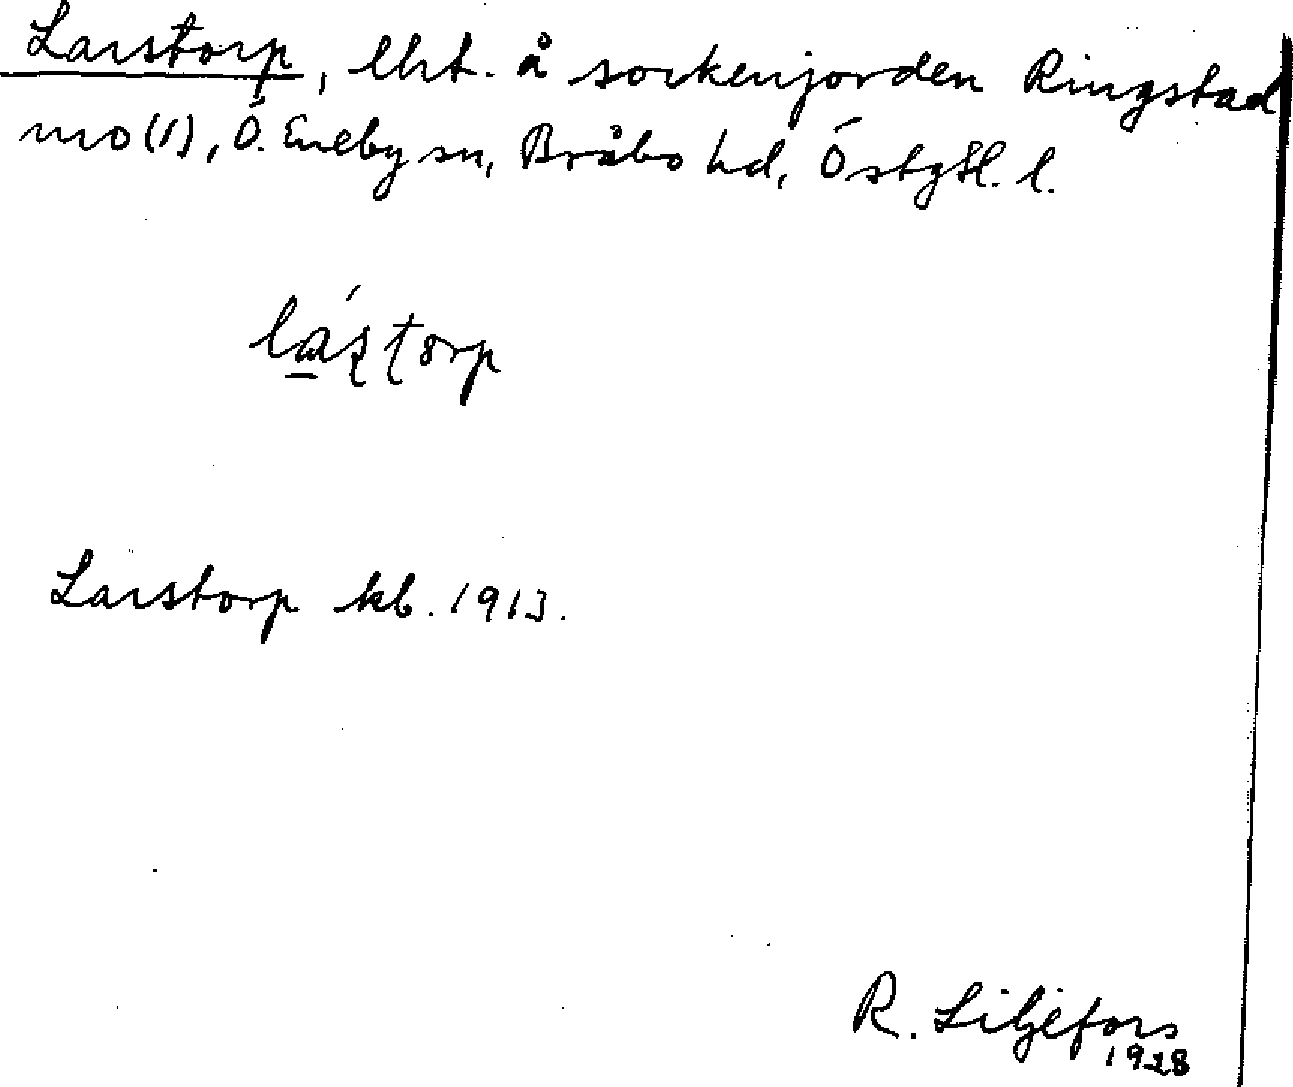 Larstorp, lht. å sockenjorden Ringstad
mo (1), Ö. Eneby sn, Bråbo hd, Östgtl. l.
lás̩ţorp
Larstorp kb. 1913.
R. Liljefors
1928